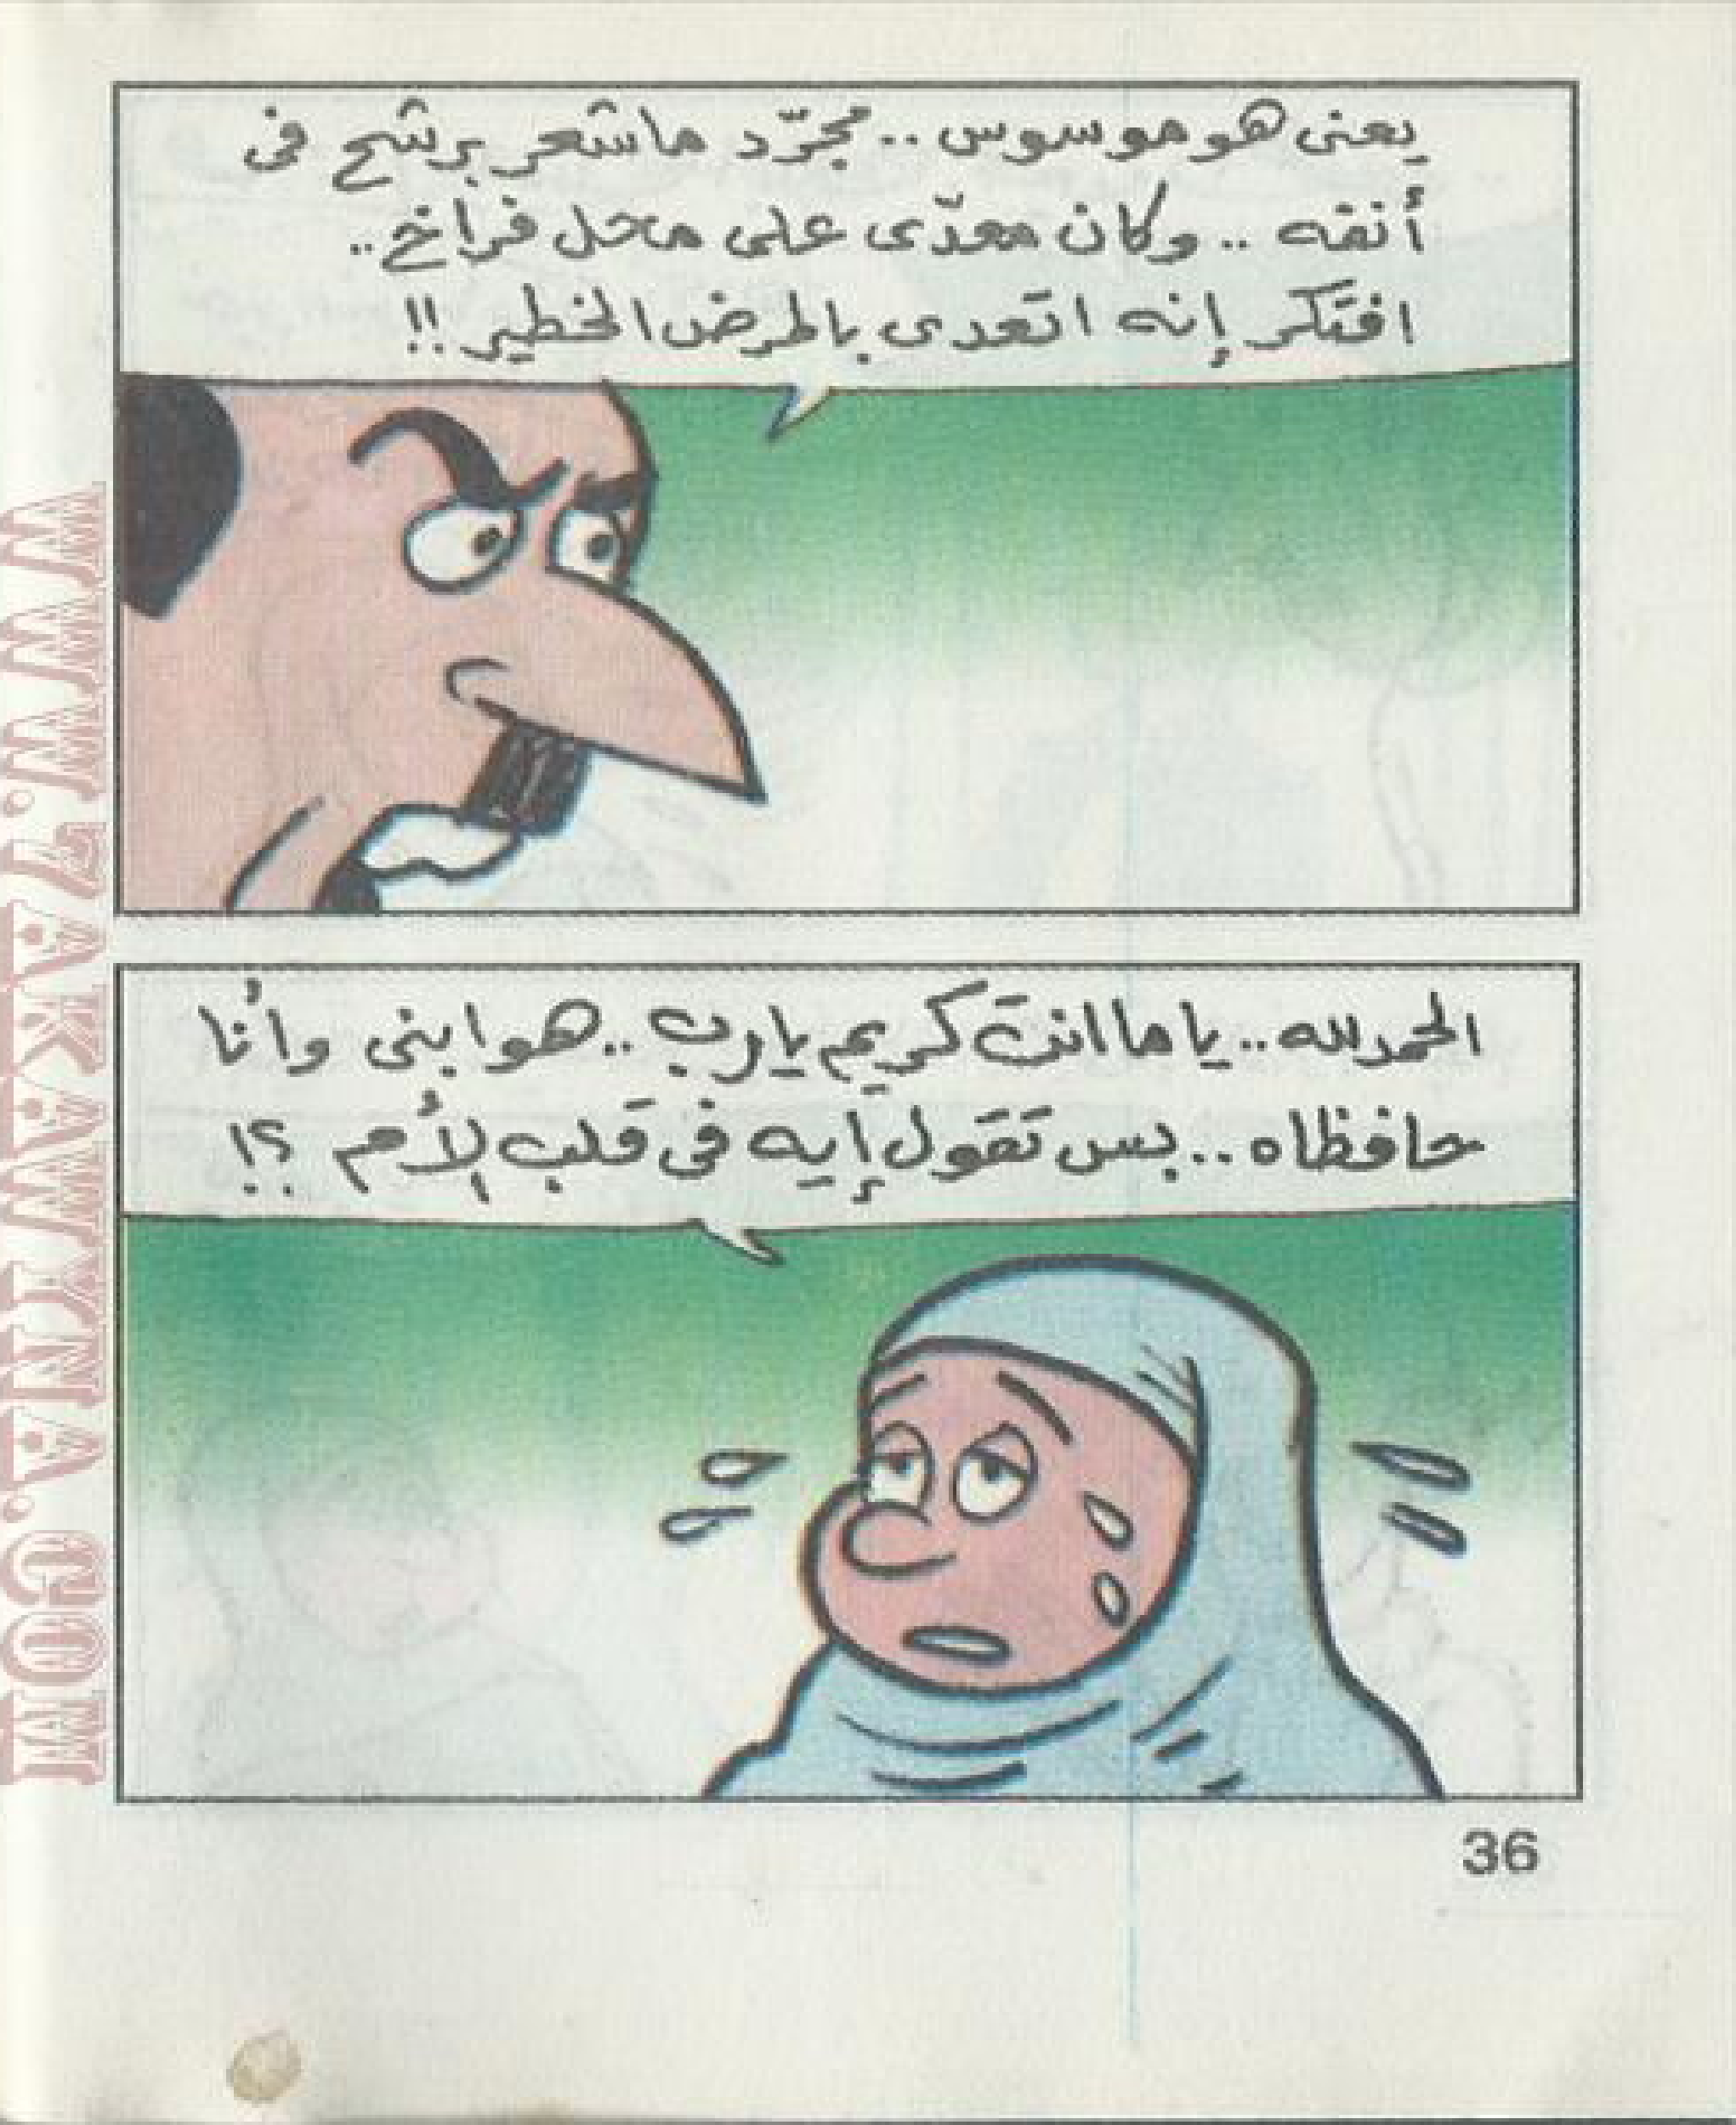 يعنى هو موسوس .. مجرّد ما شعر برشح فى
أنفه .. وكان معدّى على محل فراخ ..
افتكر إنه اتعدى بالمرض الخطير !!
الحمد لله .. ياما انت كريم يارب .. هو ابنى وأنا
حافظاه .. بس تقول إيه فى قلب الأم ؟!
36
WWW.ZAKAWYNA.COM